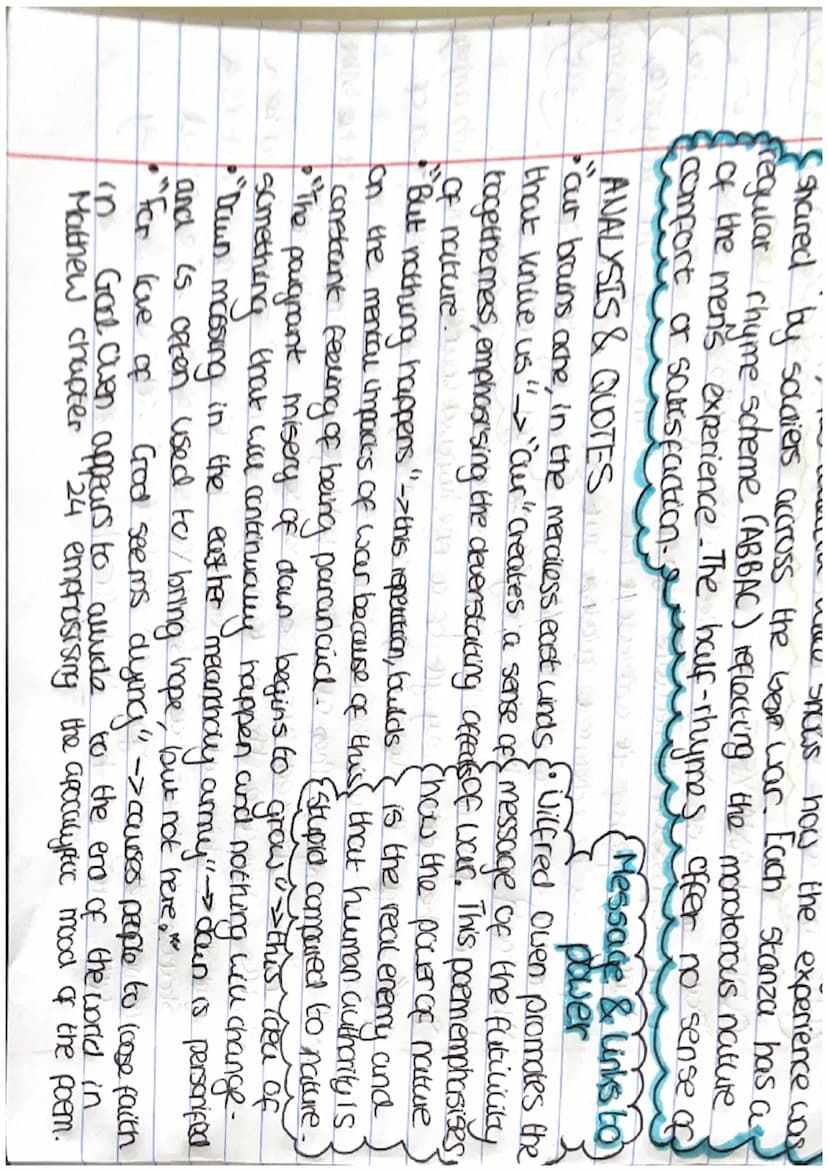 shared by soldiers accross the war. Each stanza has a
regular rhyme scheme (ABBAC) reflecting the monotonous nature
of the men's experience. The half-rhymes offer no sense of
comfort or satisfaction.
ANALYSIS & QUOTES
• "our brains ache, in the merciless east winds
that knive us" -> "our" creates a sense of
togethernes, emphasising the deverstating effects of war. This poem emphasises
of nature.
• "But nothing happens" -> this repetition, builds
on the mental impacts of war because of this
constant feeling of being paranoid.
• "The poignant misery of dawn begins to grow" -> this idea of
something that will continually happen and nothing will change.
• "Dawn massing in the east her melancholy army" -> dawn is personified
and is often used to bring hope, but not here.
• "For love of God seems dying" -> causes people to loose faith
in God. Owen appears to allude to the end of the world in
Mathew chapter 24 emphasising the apocalyptic mood of the poem.
Message & links to
power
• Wilfred Owen promotes the
message of the futility
how the power of nature
is the real enemy and
that human authority is
stupid compared to nature.